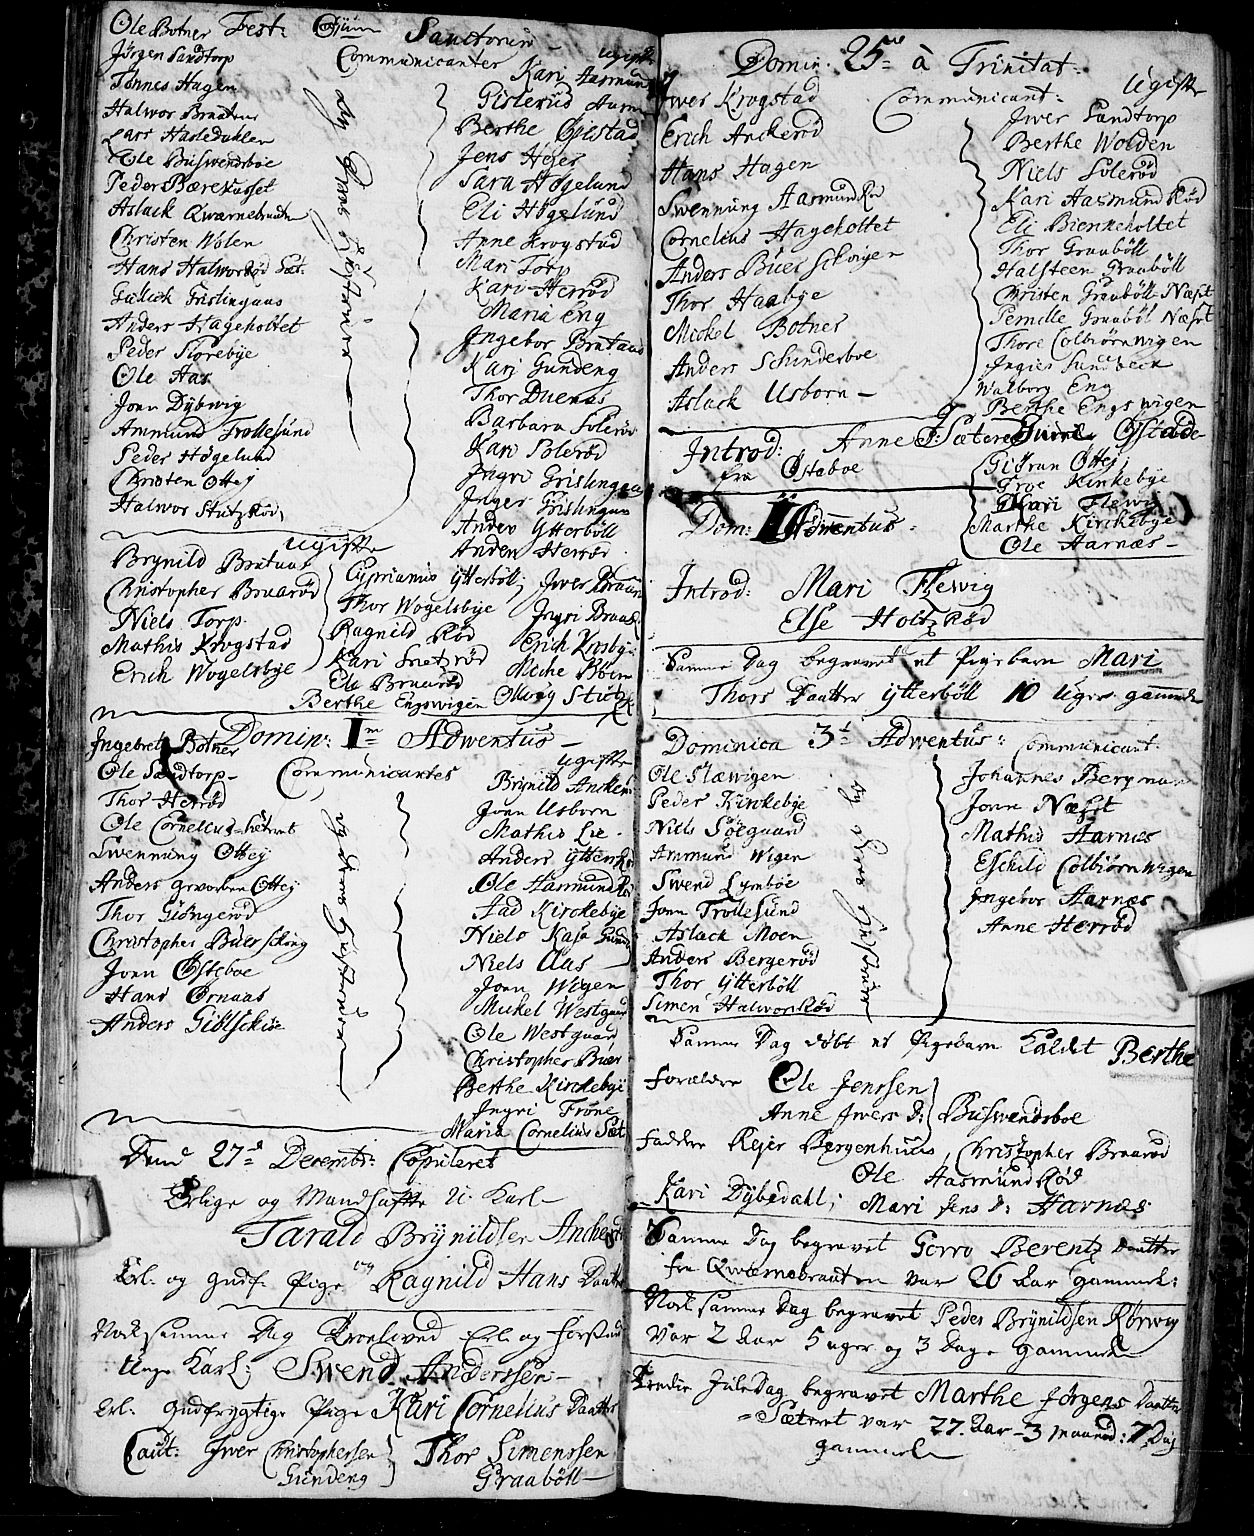 Fest: Omnium Sanctorum
Communicanter
Ole Botner
Jörgen Sandtorp
Tønnes Hagen
Halwor Braaten
Lars Hasledahlen
Ole Buswendsboe
Peder Bærekasset
Aslack Qwærnebraaten
Christen Wolen
Hans Halworsrød Sæt.
Gullick Grislingaas
Anders Hageholtet
Peder Storebye
Ole Aas
Jonn Dÿbwig
Ammund Trollesund
Peder Høgelund
Christen Ottej
Halwor Stutzrød
og deres Hustruer
ugifte
Kari Aasmund
Gislerud
Berthe Giestad
Jens Hejer
Sara Høgelund
Eli Høgelund
Anne Krogstad
Mari Torp
Kari Herrød
Maria Eng
Ingebor Brataas
Kari Gundeng
Thor Duenes
Barbara Solerød
Kari Solerød
Ingri Grislingaas
Inger Grislingaas
Anders Ytterböll
Anders Herrød
ugifte
Brynild Brataas
Christopher Bruarød
Niels Torp
Mathis Krogstad
Erich Wogelsbye
Cyprianus Ytterböll
Thor Wogelsbye
Ragnild Rød
Kari Snetzrød
Eli Bruarød
Berthe Engswigen
Jwer Braaten
Ingri Braat
Erich Krosby
Miche Böen
Olwög Stutz
Domin: I Adwentus
Communicantes
Ingebret Botner
Ole Sandtorp
Thor Herrød
Ole Cornelius-sætret
Swennung Ottej
Anders Ottej
Thor Giöngerød
Christopher Buersching
Jonn Østeboe
Hans Ørnaas
Anders Giölschie
og deres Hustruer
ugifte
Brynild Ancker
Jonn Usborn
Mathis Lie
Anders Ytterrød
Ole Aasmundrød
Aad Kirckebye
Niels Kasa
Niels Aas
Jonn Wigen
Mickel Westgaar
Ole Westgaard
Christopher Buer
Berthe Kirckebye
Ingri Tröne
Maria Cornelius Sæt
Dend 27 Decembr: Copuleret
Erlige og Mandhafte U: Karl
Tarald Brÿnildsen Anckerød
og
Erl: og Gudf: Pige Ragnild Hans Daatter
Nock samme Dag Troelowed Erl: og forstand
Unge Karl: Swend Anderssen
Erl: Gudfrygtige Pige Kari Cornelius Daatter
Caut: Jwer Christophersen Gundeng
Thor Simenssen Graaböll
Domin: 25 à Trinitat:
Communicant:
Jwer Krogstad
Erich Anckerød
Hans Hagen
Swennung Aasmundrød
Cornelius Hageholtet
Anders Buer Schoigen
Thor Haabye
Mickel Botner
Anders Schinderboe
Aslack Usborn
Ugifte
Jwer Sandtorp
Berthe Wolden
Niels Solerød
Kari Aasmundrød
Eli Bienneholtet
Thor Graaböll
Halsteen Graaböll
Christen Graaböll Næset
Pernille Graaböl Næset
Thore Colbiörnwigen
Ingier Sundbeck
Walborg Eng
Berthe Engswigen
Gurie Østad
Gidrun Ottej
Groe Kirkebye
Mari Flewig
Marthe Kirckebye
Ole Aarnæs
Introd: Anne Sæteren
fra Østeboe
Dom: II Adwentus
Introd: Mari Flewig
Else Holtzrød
Samme Dag begrawet et Pigebarn Mari
Thors Daatter Ytterböll 10 Uger gammel
Dominica 3 Adwentus: Communicant:
Ole Flæwigen
Peder Kirckebye
Niels Söegaard
Ammund Wigen
Swend Lÿmböe
Jonn Trollesund
Aslack Moen
Anders Bergerød
Thor Ytterböll
Simen Halworsrød
og deres Hustruer
Johannes Bergman
Jonn Næset
Mathis Aarnæs
Eschild Colbiörnwigen
Ingebor Aarnæs
Anne Herrød
Samme Dag døbt et Pigebarn kaldet Berthe
Forældre Ole Jenssen
Anne Jwers D: Buswendsboe
Faddere Rejer Bergenhuus, Christopher Bruarød
Ole Aasmundsrød
Kari Dÿbedahl; Mari Jens D: Aarnæs
Samme Dag begrawet Gorro Berentz Daatter
fra Qwærnebraaten war 26 Aar gammel:
Nock samme Dag begrawet Peder Brÿnildsen Rørwig
war 2 Aar 5 uger og 3 Dage gammel
Tredie JuleDag begrawet Marthe Jörgens Daatter
Sætret war 77 Aar 3 maaned: 7 Dag
gammel